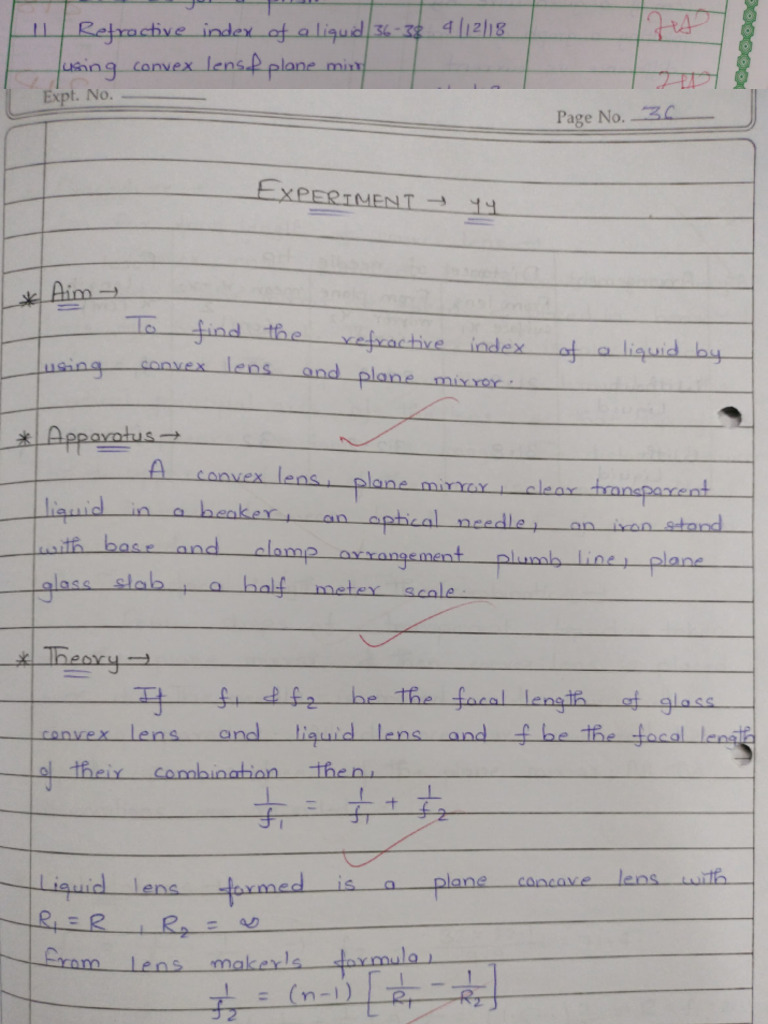 11 Refractive index of a liquid 36-38 4/12/18
using convex lens & plane mirr
Expt. No.
Page No. 36
EXPERIMENT → 11
* Aim →
To find the refractive index of a liquid by
using convex lens and plane mirror.
* Apparatus →
A convex lens, plane mirror, clear transparent
liquid in a beaker, an optical needle, an iron stand
with base and clamp arrangement plumb line, plane
glass slab, a half meter scale.
* Theory →
If f1 & f2 be the focal length of glass
convex lens and liquid lens and f be the focal length
of their combination then,
1/f1 = 1/f1 + 1/f2
Liquid lens formed is a plane concave lens with
R1 = R , R2 = ∞
From lens maker's formula,
1/f2 = (n-1) [1/R1 - 1/R2]